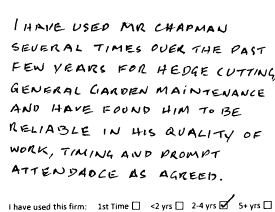 I HAVE USED MR CHAPMAN
SEVERAL TIMES OVER THE PAST
FEW YEARS FOR HEDGE CUTTING,
GENERAL GARDEN MAINTENANCE
AND HAVE FOUND HIM TO BE
RELIABLE IN HIS QUALITY OF
WORK, TIMING AND PROMPT
ATTENDADCE AS AGREED.
I have used this firm: 1st Time ☐ <2 yrs ☐ 2-4 yrs ☑ 5+ yrs ☐